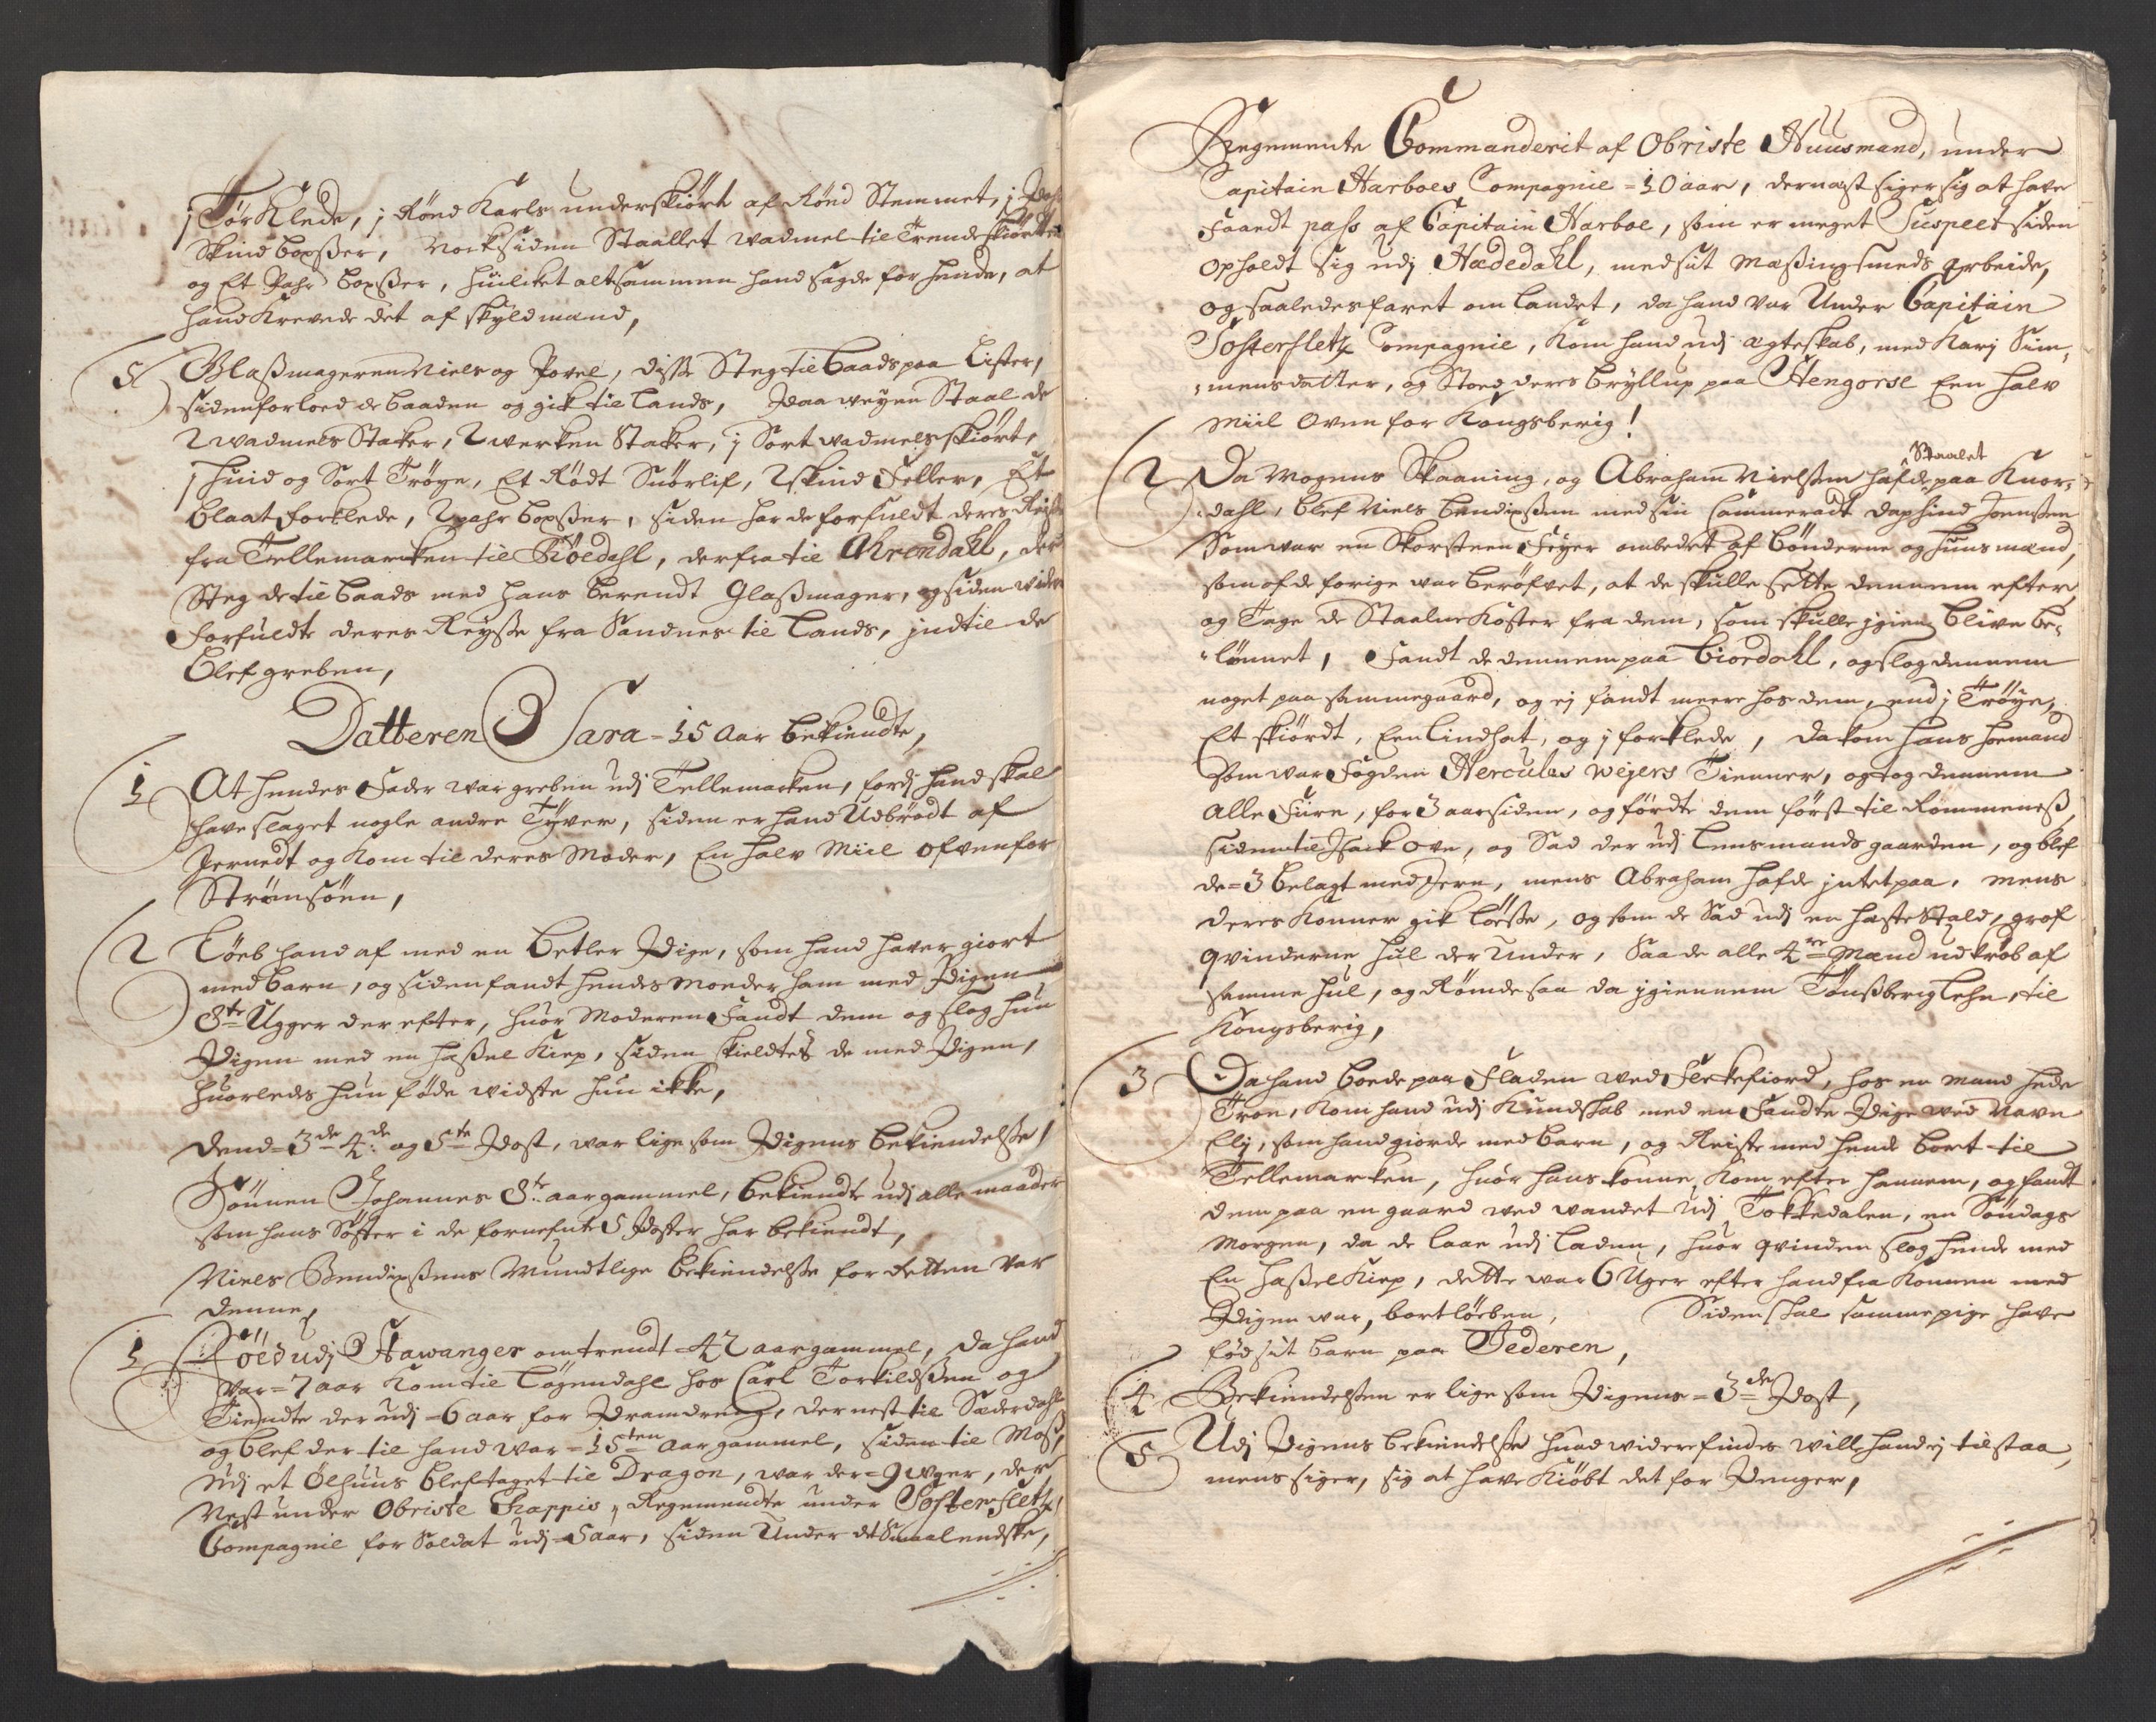 1 Tør Klede, 1 Rønd Karls underskiørt af Rønd Stemmet, 1
Skind boxsser, Noch siden Staallet wadmel til Trende skiørtter
og Et Pahr boxsser, huilcket altsammen hand sagde for hende, at
hand Krevede det af skyldmænd,
5 Glassmageren Niels og Povel, disse Steg til baads paa Lister,
siden forloed de baaden og gik til Lands, Paa weyen Staal de
2 wadmels Stacker, 2 werken Stacker, 1 Sort wadmels skiørt,
1 huid og Sort Trøye, Et Rødt Snørlif, 2 skind Feller, Et
blaat forklede, 2 pahr boxsser, siden har de forfuldt deres Reise
fra Tellemarcken til Røedahl, derfra til Arendahl, der
Steg de til baads med Hans berendt Glassmager, og siden widere
forfuldte deres Reysse fra Sandnes til Lands, indtil de
blef greben,
Datteren Sara - 15 Aar bekiendte,
1 At hendes Fader war greben udj Tellemarken, fordj hand skal
have slaget nogle andre Tyver, siden er hand Udbrødt af
Jernedt og Kom til deres Moder, En halv Miil ofvenfor
Strømsøen,
2 Løeb hand af med en betler Pige, som hand haver giort
med barn, og siden fandt hendes Moeder ham med Pigen
8te Ugger der efter, huor Moderen Fandt dem og slog hun
Pigen med en hassel Kiep, siden skieldtes de med Pigen,
huorleds hun føde widste hun ikke,
Dend = 3de 4de og 5te Post, war lige som Pigens bekiendelsse,
Sønnen Johannes 8te aar gammel, bekiendte udj alle maader
som hans Søster i de fornefnte 5 Poster har bekiendt,
Niels Bendixssens Mundtlige bekiendelsse for Retten var
denne,
1 Føed udj Stawanger omtrendt = 42 aar gammel, da hand
var = 7 aar Kom til Løgendahl hos Carl Torkildssen og
Tiendte der udj = 6 aar for Dramdreng, dernest til Sæderdahl
og blef der til hand war = 15ten Aar gammel, siden til Moss,
udj et Ølhuus blef taget til Dragon, war der = 9 wger, der
Nest under Obriste Chappis Regemendte under Tostersletz
Compagnie for Soldat udj = 5 aar, siden Under det Smaalendske,
Regemente Commanderit af Obriste Huusmand, under
Capitain Harboes Compagnie = 10 aar, dernæst siger sig at have
faaedt pass af Capitain Harboe, som er meget Suspect siden
opholdt sig udj Hædedahl, med sit Messingsmeds Arbeide,
og saaledes faret om landet, da hand var Under Capitain
Tostersletz Compagnie, Kom hand udj ægteskab, med Karj Sim-
mensdatter, og Stoed deres bryllup paa Stengorse Een halv
Miil Oven for Kongsberig!
2 Da Mogens Skaaning, og Abraham Nielssen hafde Staalet paa Knor-
dahl, blef Niels bendixssen med sin Cammeradt Daphind Joenssen
Som war en Skorsteen Feyer ombedet af bønderne og huusmænd,
som af de forige war berøfvet, at de skulle sette dennem efter,
og Tage de Staalne Koster fra dem, som skulle igien blive be-
lønnet, Fandt de dennem paa Biordahl, og slog dennem
noget paa samme gaard, og ej fandt meere hos dem, end 1 Trøye,
Et skiørdt, Een Lindhat, og 1 forklede, da kom Hans Joemand
Som war Fogden Hercules Weyers Tienner, og tog dennem
Alle Fiire, for 3 aar siden, og førdte dem først til Rommeness,
siden til Isack Ove, og Sad der udj Lensmands gaarden, og blef
de = 3 belagt med Jern, mens Abraham hafde intet paa, mens
deres Konner gik Løesse, og som de Sad udj en hæste Stald, grof
qvinderne hul der Under, Saa de alle 4re Mænd udkrøb af
samme hul, og Rømde saa da igiennem Tønssberig Lehn, til
Kongsberig,
3 Da hand boede paa Fladen wed Fleckefiord, hos en mand hede
Tron, Kom hand udj Kundskab med en Fandte Pige wed Navn
Elj, som hand giorde med barn, og Reiste med hende bort til
Tellemarken, huor hans konne, Kom efter hannem, og fandt
dem paa en gaard wed wandet udj Tokkedalen, en Søndags
Morgen, da de laae udj Laden, huor qvinden slog hende med
En hassel Kiep, dette war 6 Uger efter hand fra Konnen med
Pigen war bortløeben, Siden skal samme pige have
fød sit barn paa Jederen,
4 Bekiendelssen er lige som Pigens = 3de Post,
5 Udj Pigens bekiendelsse huad widere findes will hand ej tilstaa,
mens siger, sig at have Kiøbt det for Penger,